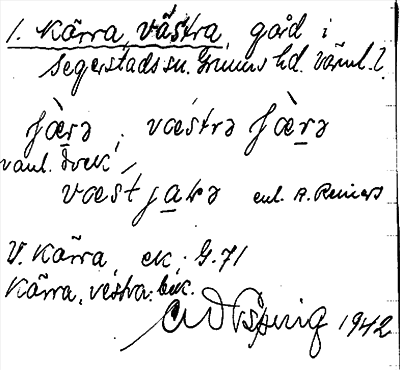 1. Kärra, västra, gård i
Segerstads sn. Grums hd. Värml. l.
jæ̀rə, væstrə jæ̀rə
vanl.
væst jærə enl. A. Reiners
V. Kärra ek. G. 71
Kärra, västra: bok.
1942